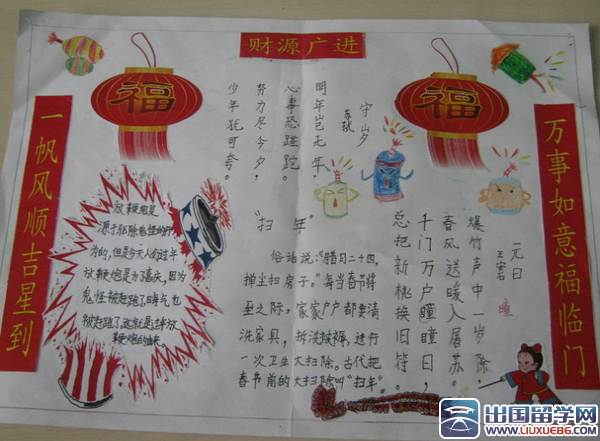 财源广进
福
福
一帆风顺吉星到
万事如意福临门
守岁
苏轼
明年岂无年,
心事恐蹉跎。
努力尽今夕,
少年犹可夸。
放鞭炮是
为的,但是今天人们过年
放鞭炮是为了喜庆,因为
鬼怪被赶跑了晦气也
被赶跑了,这就是过年放
“扫年”
俗话说:“腊月二十四,
掸尘扫房子。”每当春节将
至之际,家家户户都要清
洗家具,拆洗被褥,进行
一次卫生大扫除。古代把
春节前的大扫除叫“扫年”。
元日
王安石
爆竹声中一岁除,
春风送暖入屠苏。
千门万户瞳瞳日,
总把新桃换旧符。
瞳
出国留学网
WWW.LIUXUE86.COM